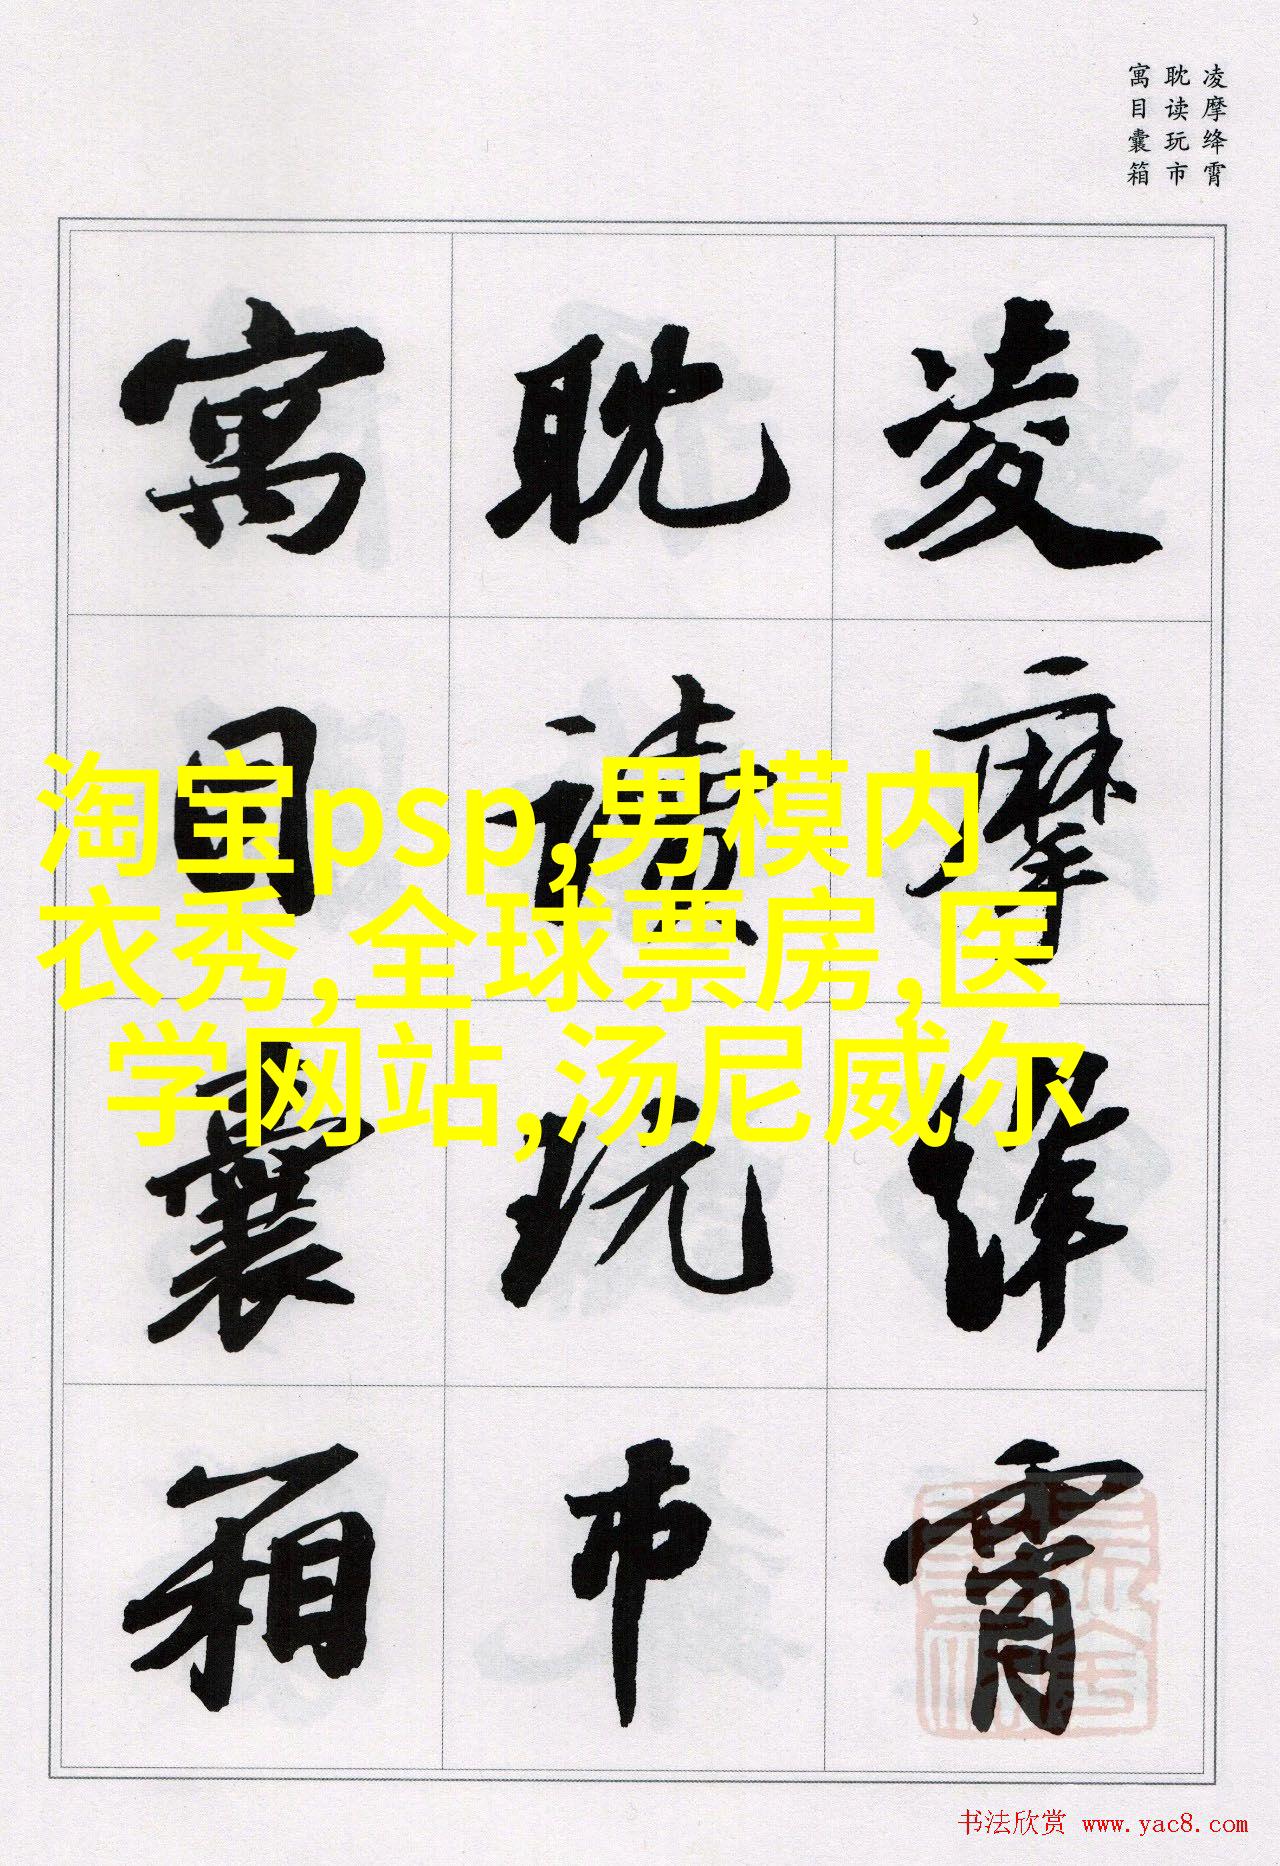 凌摩绛霄
耽读玩市
寓目囊箱
凌摩绛霄
耽读玩市
寓目囊箱
淘宝psp,男模内
衣秀,全球票房,医
学网站,汤尼威尔
书法欣赏 www.yac8.com